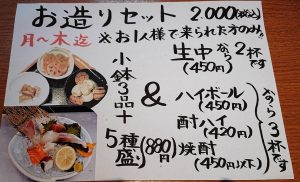 お造りセット 2.000(税込)
月～木迄 ※お1人様で来られた方のみ!!
小鉢3品+
5種盛(880円)
&
生中なら2杯です
(450円)
ハイボール
(450円)
酎ハイ
(420円)
焼酎
(450円以下)
なら3杯です